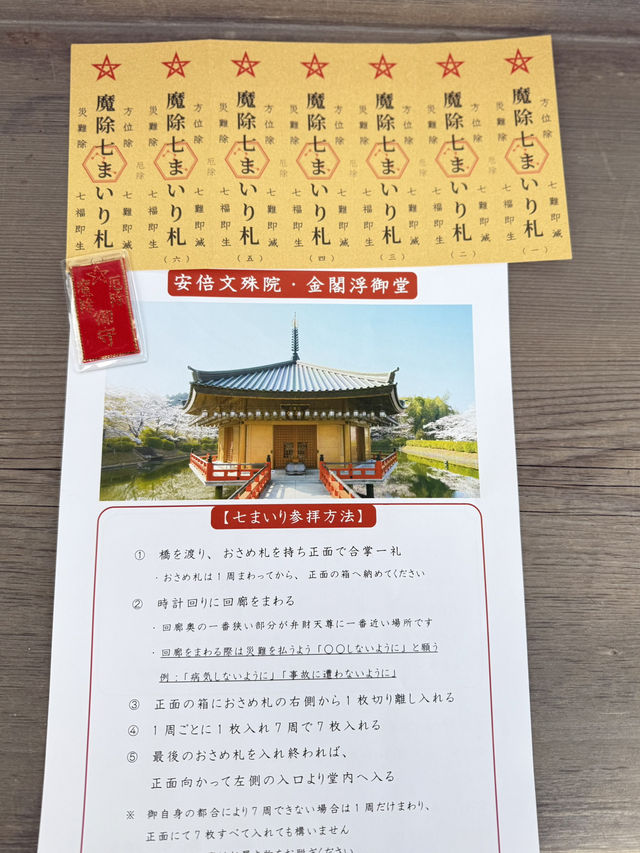 方位除 七難即滅
魔除七まいり札
(一)
災難除 七福即生
厄除
方位除 七難即滅
魔除七まいり札
(二)
災難除 七福即生
厄除
方位除 七難即滅
魔除七まいり札
(三)
災難除 七福即生
厄除
方位除 七難即滅
魔除七まいり札
(四)
災難除 七福即生
厄除
方位除 七難即滅
魔除七まいり札
(五)
災難除 七福即生
厄除
方位除 七難即滅
魔除七まいり札
(六)
災難除 七福即生
厄除
方位除 七難即滅
魔除七まいり札
災難除 七福即生
厄除
御守
安倍文殊院・金閣浮御堂
【七まいり参拝方法】
① 橋を渡り、おさめ札を持ち正面で合掌一礼
・おさめ札は1周まわってから、正面の箱へ納めてください
② 時計回りに回廊をまわる
・回廊奥の一番狭い部分が弁財天尊に一番近い場所です
・回廊をまわる際は災難を払うよう「〇〇しないように」と願う
例:「病気しないように」「事故に遭わないように」
③ 正面の箱におさめ札の右側から1枚切り離し入れる
④ 1周ごとに1枚入れ7周で7枚入れる
⑤ 最後のおさめ札を入れ終われば、
正面向かって左側の入口より堂内へ入る
※ 御自身の都合により7周できない場合は1周だけまわり、
正面にて7枚すべて入れても構いません